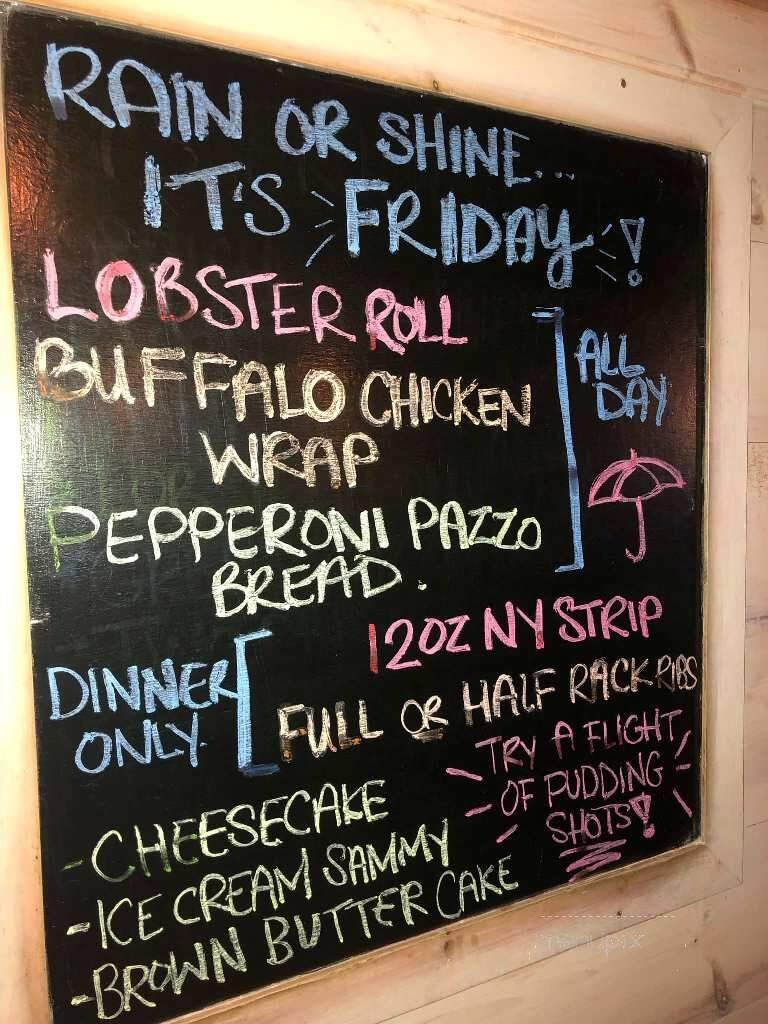 RAIN OR SHINE...
IT'S FRIDAY!
LOBSTER ROLL
BUFFALO CHICKEN
WRAP
PEPPERONI PAZZO
BREAD.
ALL
DAY
DINNER
ONLY.
12OZ NY STRIP
FULL OR HALF RACK RIBS
TRY A FLIGHT
OF PUDDING
SHOTS!
-CHEESECAKE
-ICE CREAM SAMMY
-BROWN BUTTER CAKE